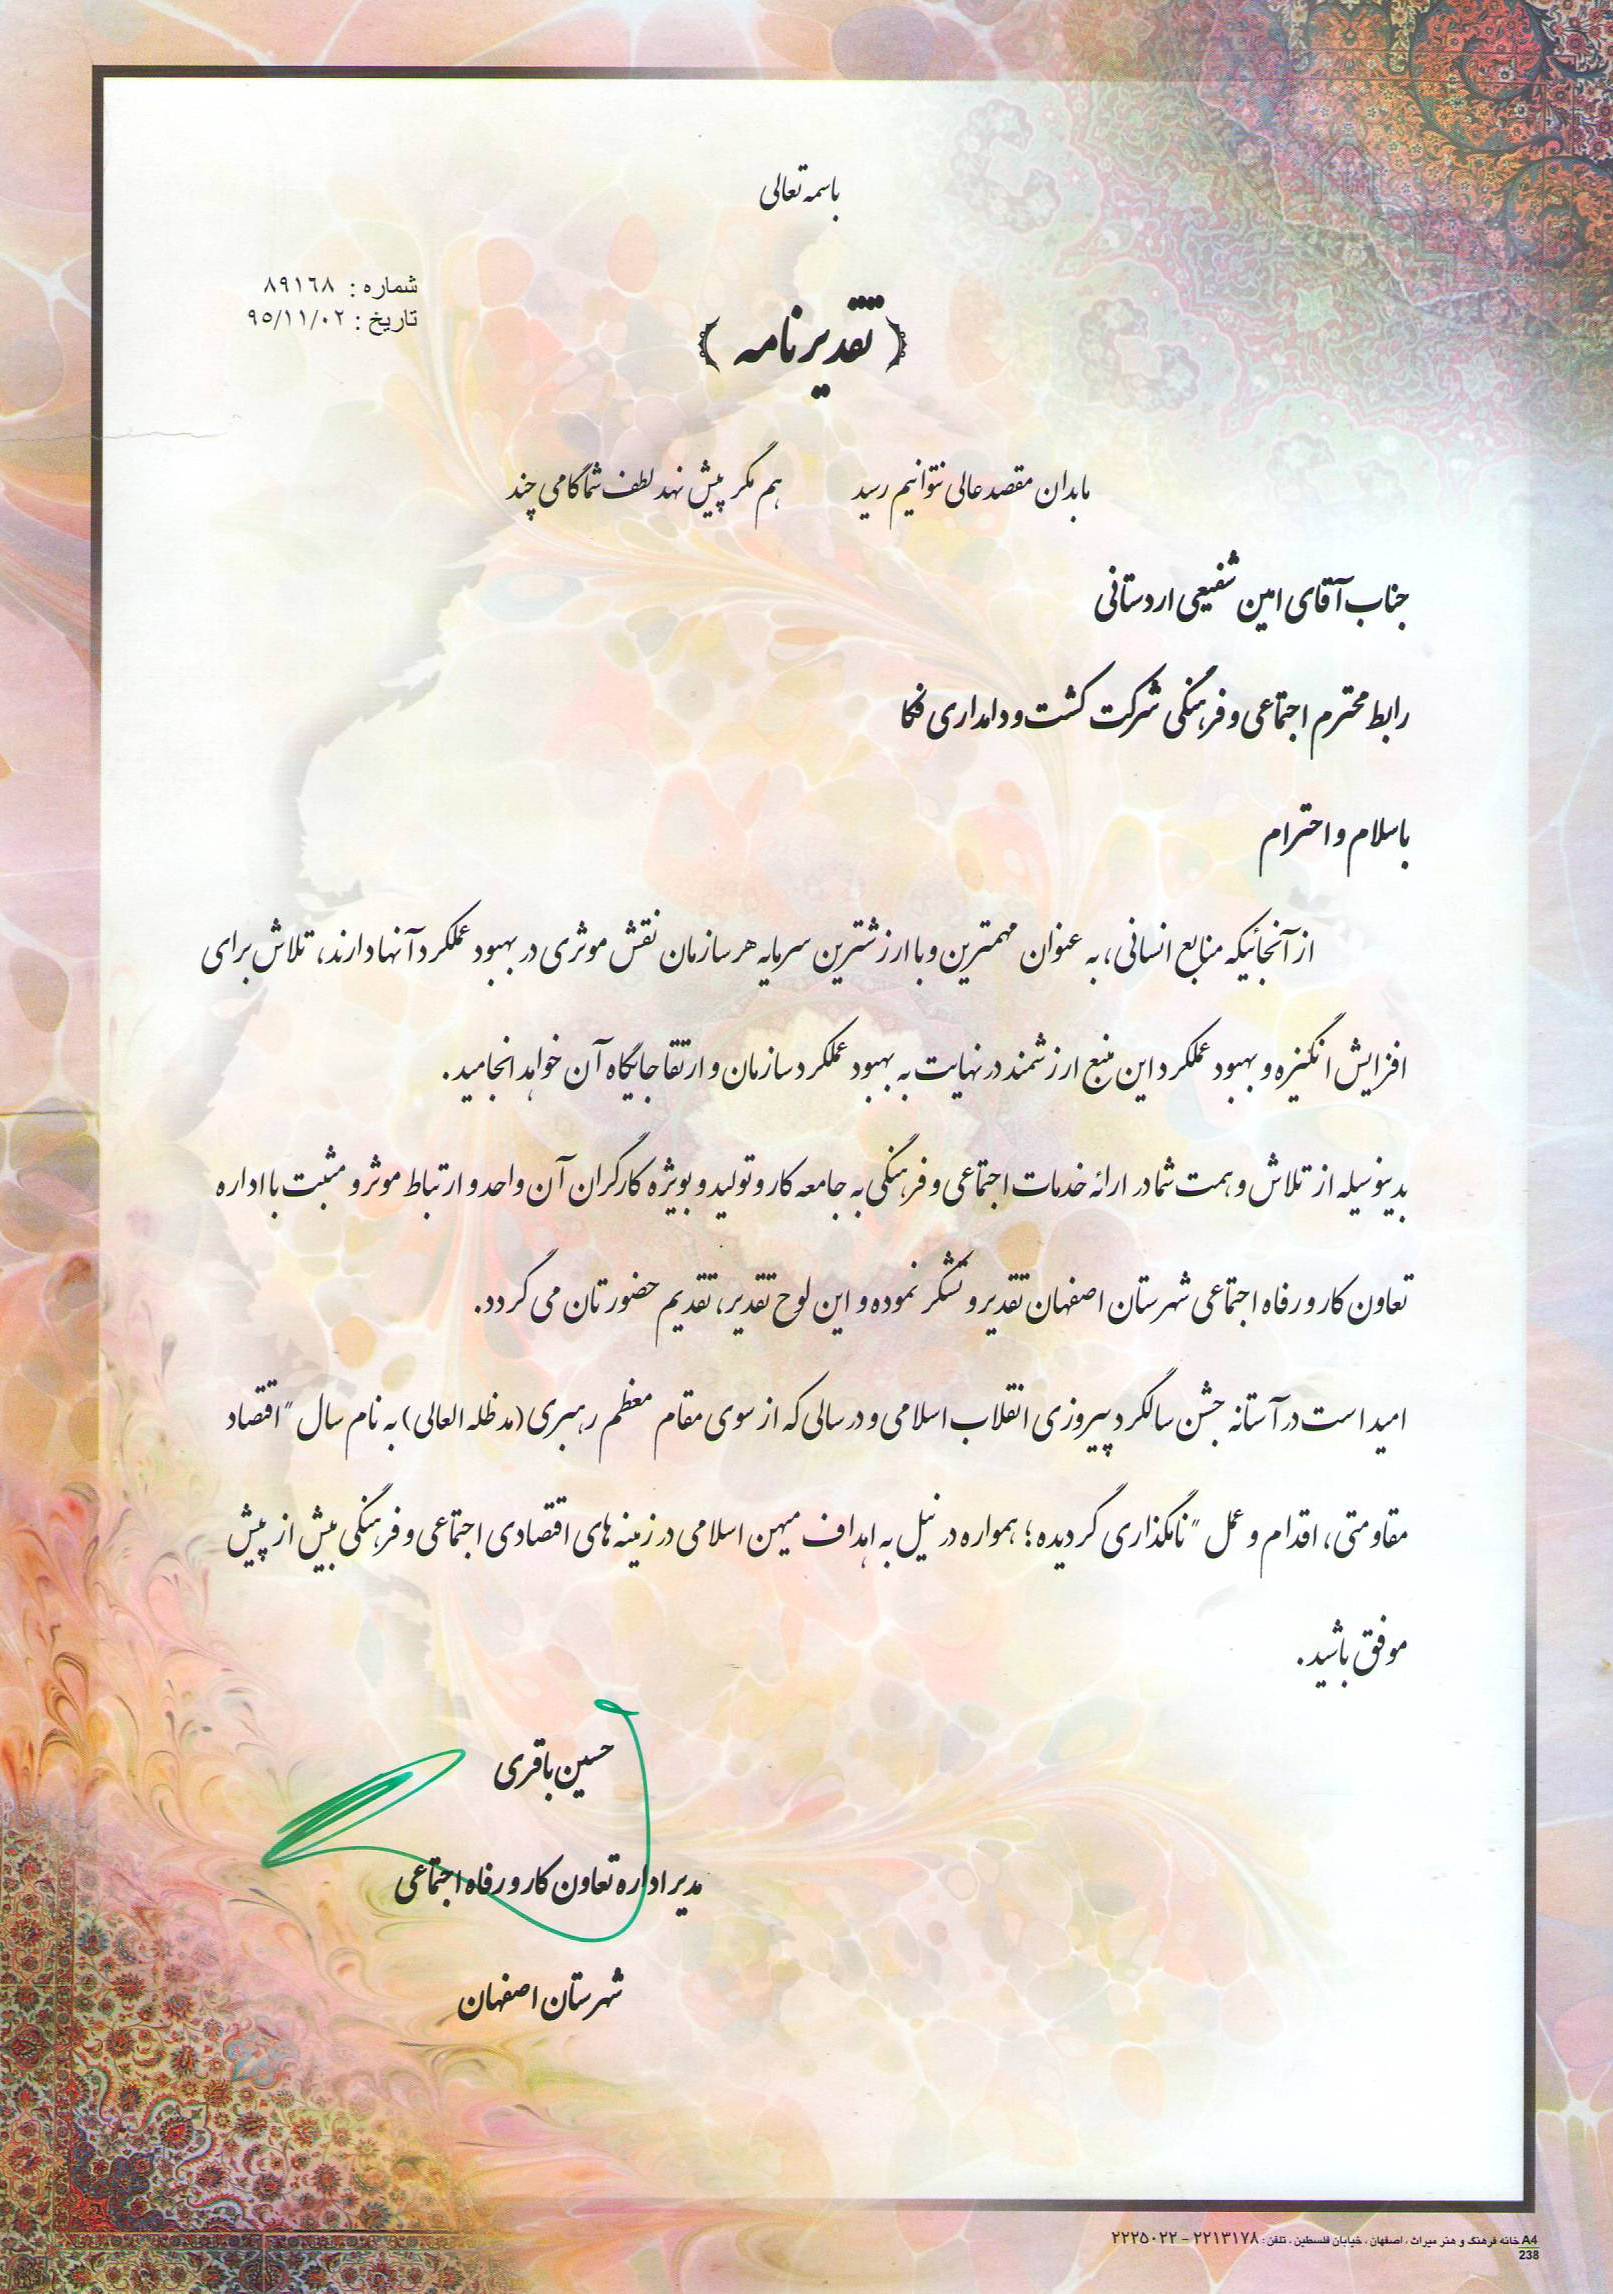 باسمه تعالی
شماره : ۸۹۱۶۸
تاریخ : ۹۵/۱۱/۰۲
تقدیرنامه
ما بدان مقصد عالی نتوانیم رسید هم مگر پیش نهد لطف شما گامی چند
جناب آقای امین شفیعی اردستانی
رابط محترم اجتماعی و فرهنگی شرکت کشت و دامداری فکا
با سلام و احترام
از آنجائیکه منابع انسانی، به عنوان مهمترین و با ارزشترین سرمایه هر سازمان نقش موثری در بهبود عملکرد آنها دارند، تلاش برای
افزایش انگیزه و بهبود عملکرد این منبع ارزشمند در نهایت به بهبود عملکرد سازمان و ارتقا جایگاه آن خواهد انجامید.
بدینوسیله از تلاش و همت شما در ارائه خدمات اجتماعی و فرهنگی به جامعه کار و تولید و بویژه کارگران آن واحد و ارتباط موثر و مثبت با اداره
تعاون کار و رفاه اجتماعی شهرستان اصفهان تقدیر و تشکر نموده و این لوح تقدیر، تقدیم حضورتان می گردد.
امید است در آستانه جشن سالگرد پیروزی انقلاب اسلامی و در سالی که از سوی مقام معظم رهبری (مدظله العالی) به نام سال "اقتصاد
مقاومتی، اقدام و عمل" نامگذاری گردیده؛ همواره در نیل به اهداف میهن اسلامی در زمینه های اقتصادی اجتماعی و فرهنگی بیش از پیش
موفق باشید.
حسین باقری
مدیر اداره تعاون کار و رفاه اجتماعی
شهرستان اصفهان
A4 خانه فرهنگ و هنر میراث ، اصفهان ، خیابان فلسطین ، تلفن : ۲۲۱۳۱۷۸ - ۲۲۲۵۰۲۲
238